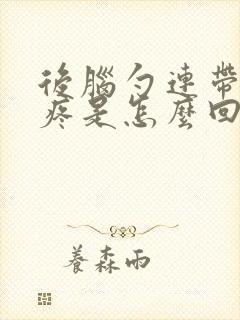 後腦勺連帶
疼是怎麼回
養森雨